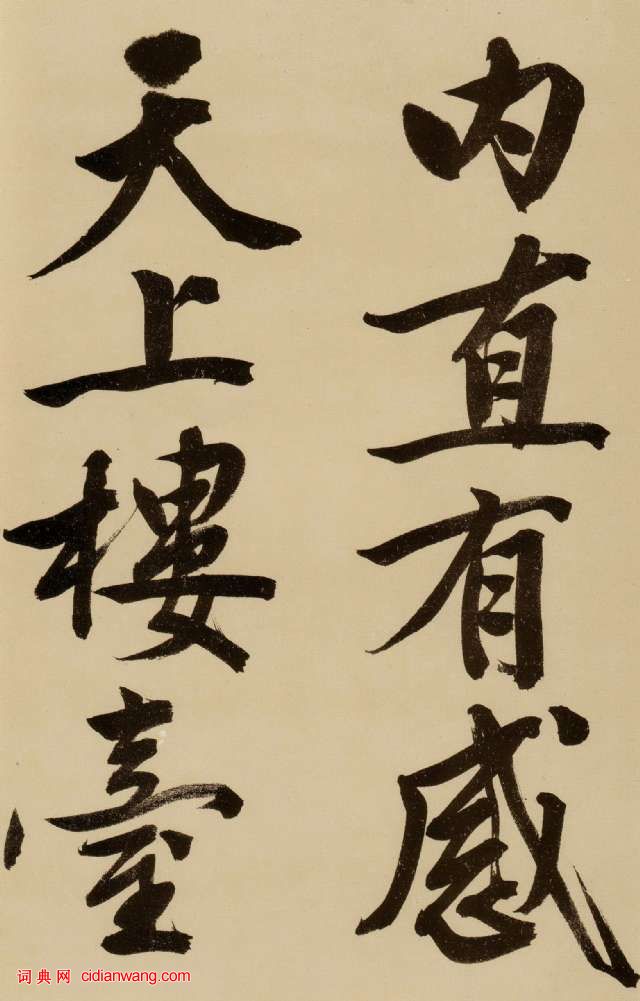 内直有感
天上樓臺
词典网 cidianwang.com